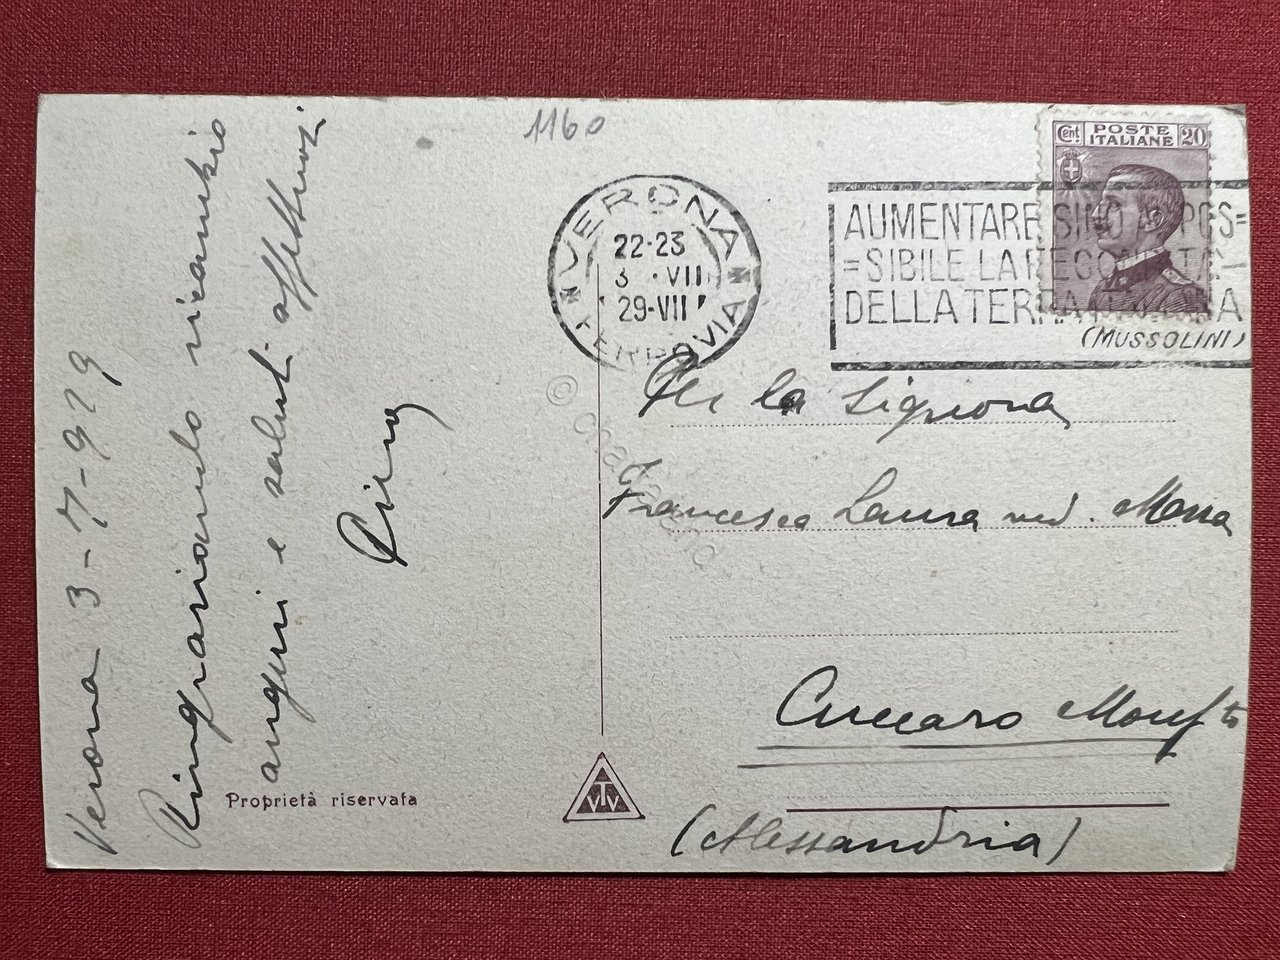 1160
Cent. POSTE ITALIANE 20
VERONA
22-23
3 · VII
29-VII
FERROVIA
AUMENTARE SINO AL POS=
=SIBILE LA FECONDITA'
DELLA TERRA
(MUSSOLINI)
Verona 3-7-929
Ringraziando ricambio
auguri e saluti affettuosi
Pina
Per la Signora
Francesca Laura ved. Massa
Cuccaro Monfto
(Alessandria)
Proprietà riservata
VTV
© charta